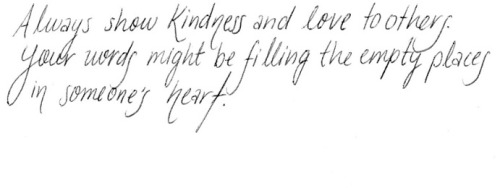 Always show Kindness and love to others.
Your words might be filling the empty places
in someone's heart.